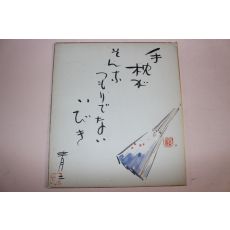 手枕が
そんな
つもりでない
いびき